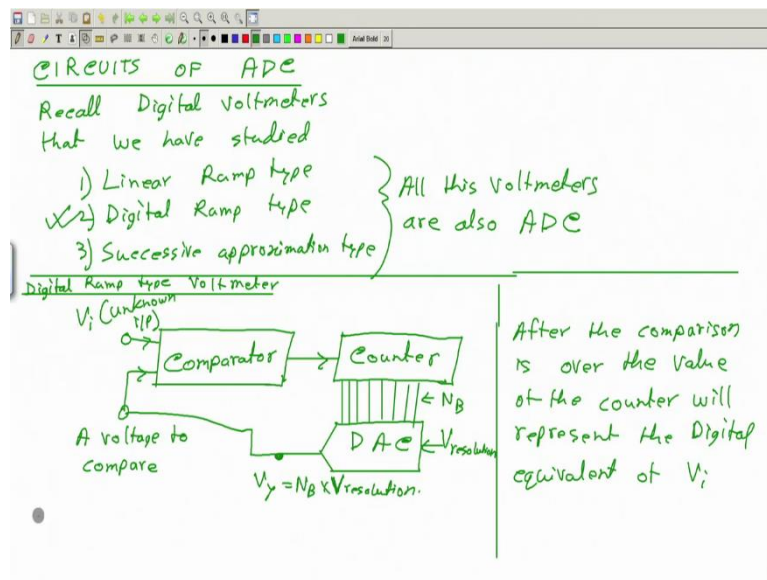 Arial Bold 20
CIRCUITS OF ADC
Recall Digital Voltmeters
that we have studied
1) Linear Ramp type
2) Digital Ramp type
3) Successive approximation type
All this voltmeters
are also ADC
Digital Ramp type Voltmeter
Vi (unknown
i/p)
Comparator
Counter
← NB
A voltage to
compare
DAC
← Vresolution
Vy = NB x Vresolution.
After the comparison
is over the value
of the counter will
represent the Digital
equivalent of Vi